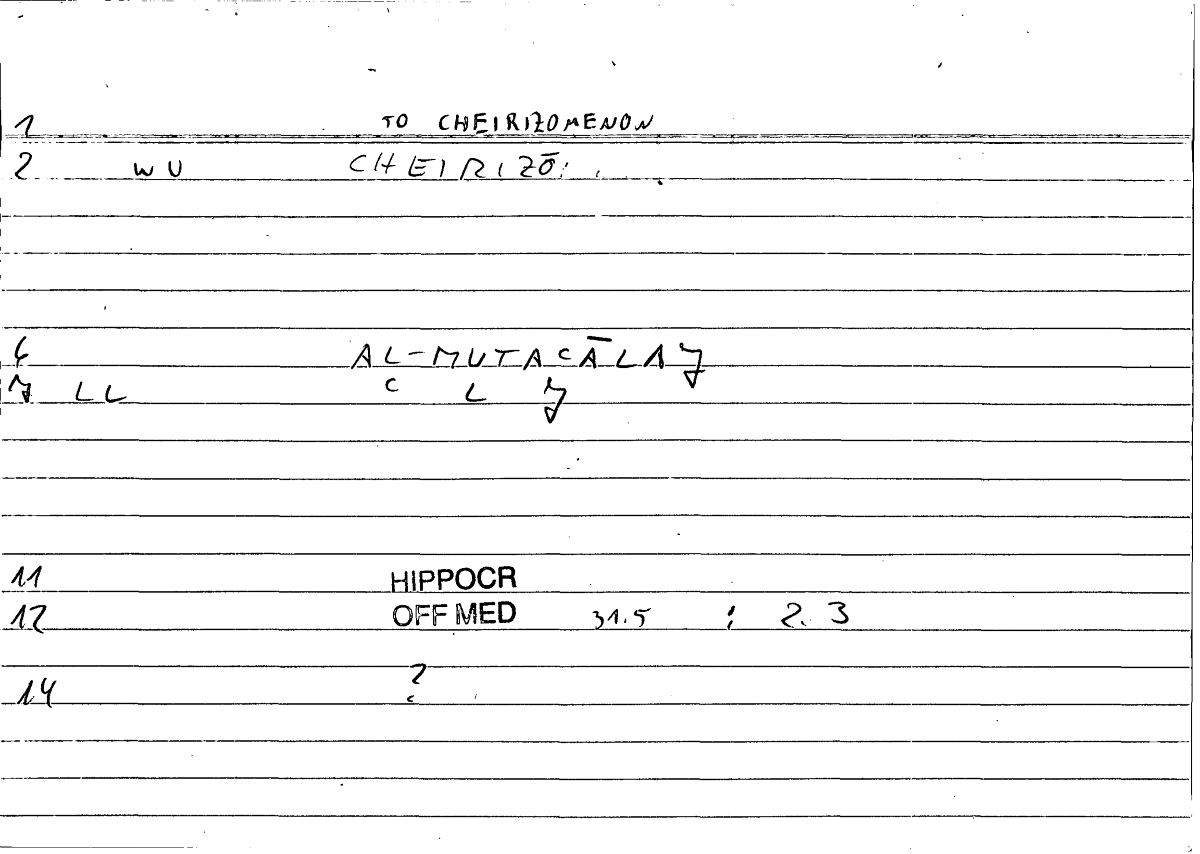 1 TO CHEIRIZOMENON
2 WU CHEIRIZŌ
6 AL-MUTACĀLAJ
7 LL C L J
11 HIPPOCR
12 OFF MED 31.5 : 2.3
14 ?